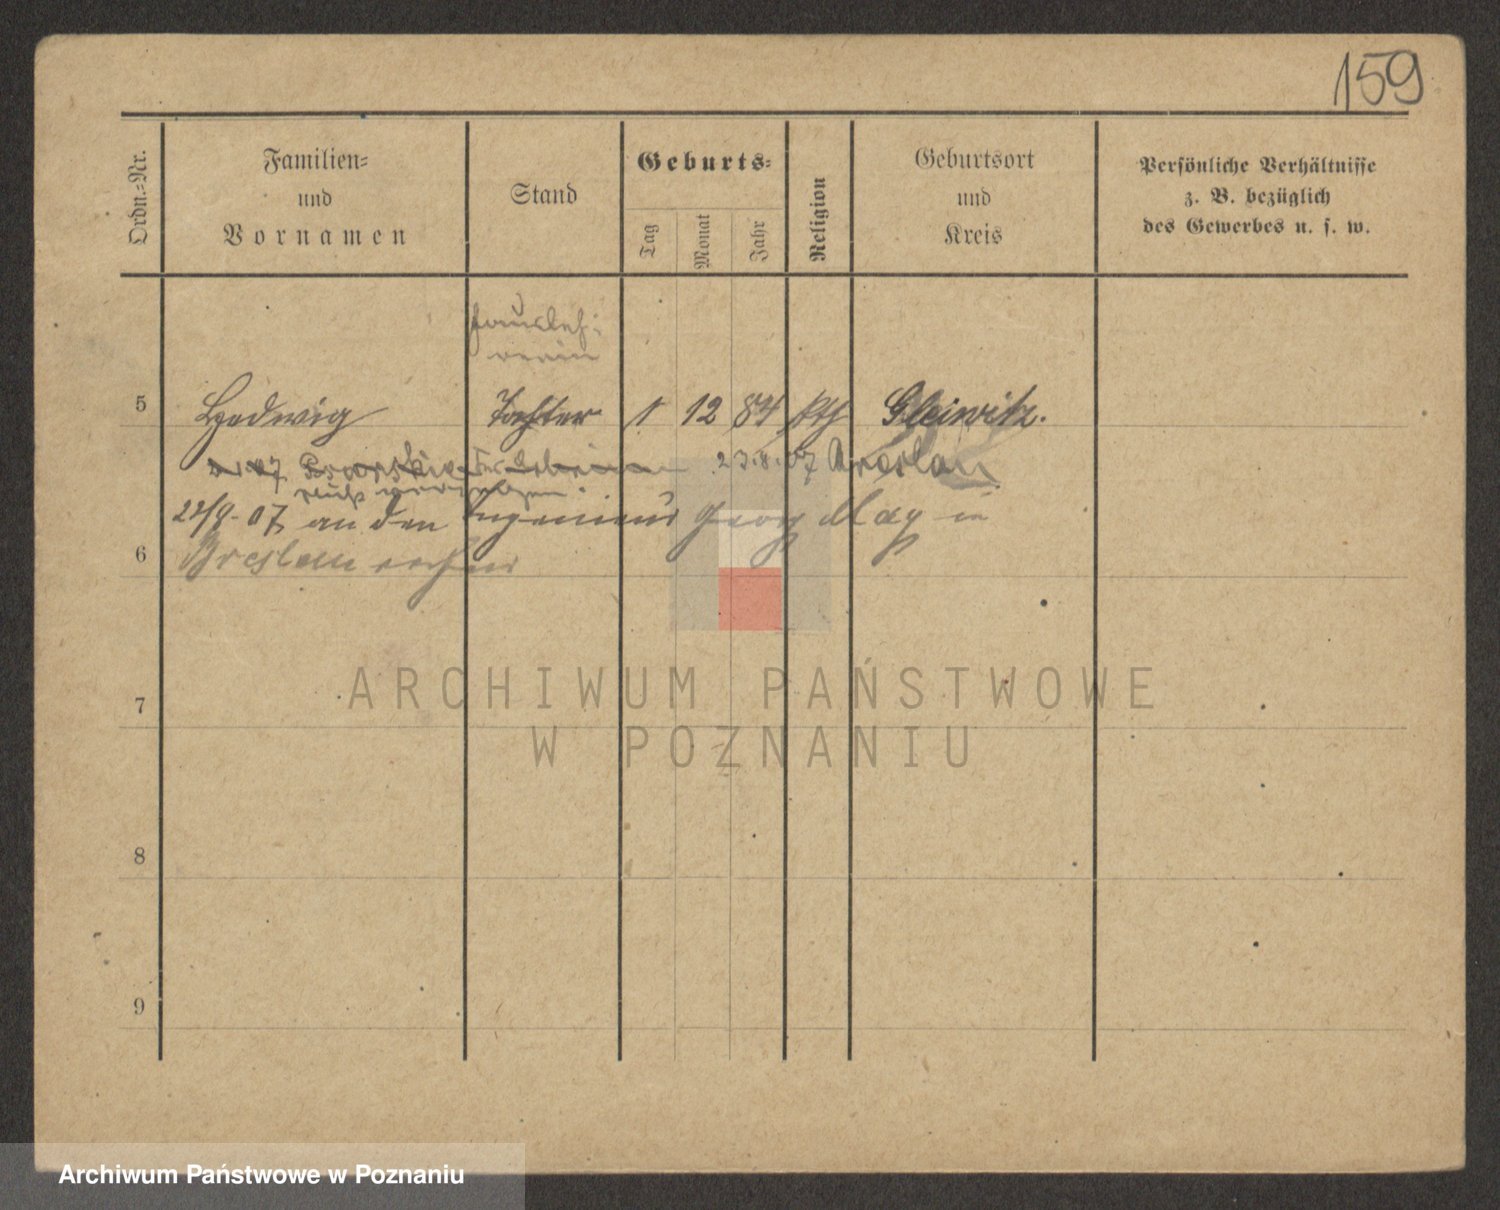 159
Ordn.-Nr.
Familien-
und
Vornamen
Stand
Geburts-
Tag
Monat
Jahr
Religion
Geburtsort
und
Kreis
Persönliche Verhältnisse
z. B. bezüglich
des Gewerbes u. s. w.
5 Hedwig Tochter 1 12 84 kth Gleiwitz.
23.8.07 Breslau
22/9. 07 an den Ingenieur Georg May in
6
Breslau
7
8
9
ARCHIWUM PAŃSTWOWE
W POZNANIU
Archiwum Państwowe w Poznaniu